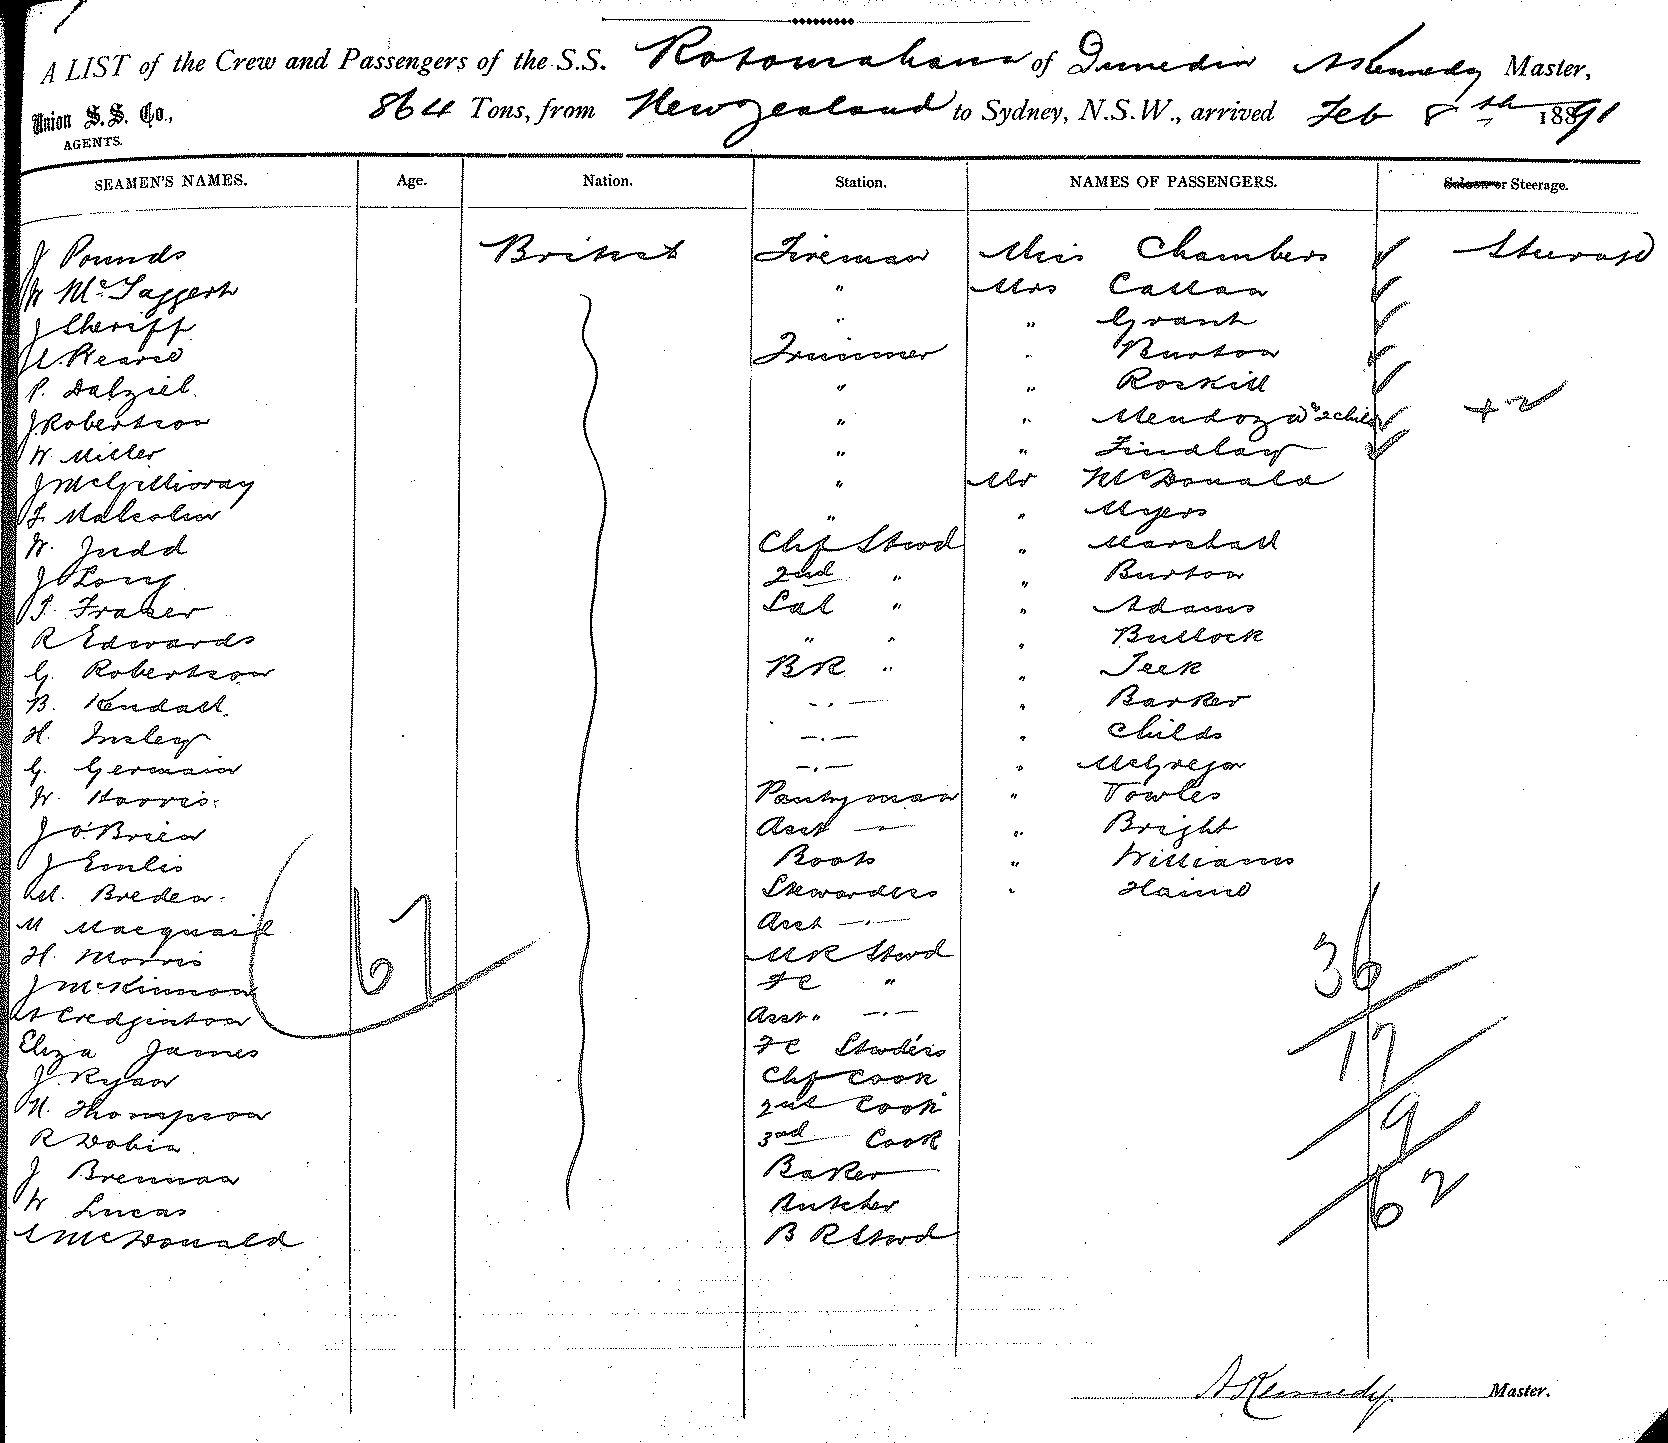 A LIST of the Crew and Passengers of the S.S. Rotomahana of Dunedin A Kennedy Master,
Union S.S. Co., AGENTS. 864 Tons, from New Zealand to Sydney, N.S.W., arrived Feb 8th 1891
SEAMEN'S NAMES. Age. Nation. Station. NAMES OF PASSENGERS. Saloon or Steerage.
J Pounds British Fireman Miss Chambers Steerage
W McTaggert " Mrs Callan
J Sheriff " " Grant
Pearce Trimmer " Burton
P. Dalziel " " Roskill
J Robertson " " Mendoza & 2 child + 2
W Miller " " Findlay
J McGillivray " Mr McDonald
F Malcolm " " Myers
W. Judd Chf Stewd " Marshall
J Long 2nd " " Burton
T. Fraser Sal " " Adams
R Edwards " " " Bullock
G. Robertson BR " " Teek
B. Kendall " Barker
H. Insley " Childs
G. Germain " McGregor
W. Harris Pantryman " Vowles
J O'Brien Asst " Bright
J Emlis Boots " Williams
M. Breden Stewardess " Haime
M Macquaid Asst
H. Morris MR Stewd 36
J McKinnon FC " 67
A Credginton Asst "
Eliza James FC Stewdess 17
J. Ryan Chf Cook
H. Thompson 2nd Cook 9
R Dobin 3rd Cook
J Brennan Baker
W Lucas Butcher 62
McDonald B R Stewd
A Kennedy Master.